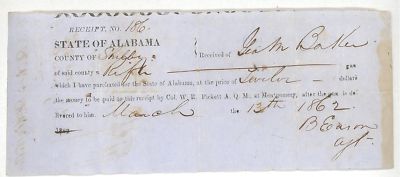 RECEIPT, NO. 186
STATE OF ALABAMA
COUNTY OF Shelby
Received of Geo M Baker
of said county a Rifle gun
which I have purchased for the State of Alabama, at the price of Twelve dollars
the money to be paid on this receipt by Col. W. R. Pickett A. Q. M., at Montgomery, after the gun is de-
livered to him March the 13th 1862
B Eason
agt.